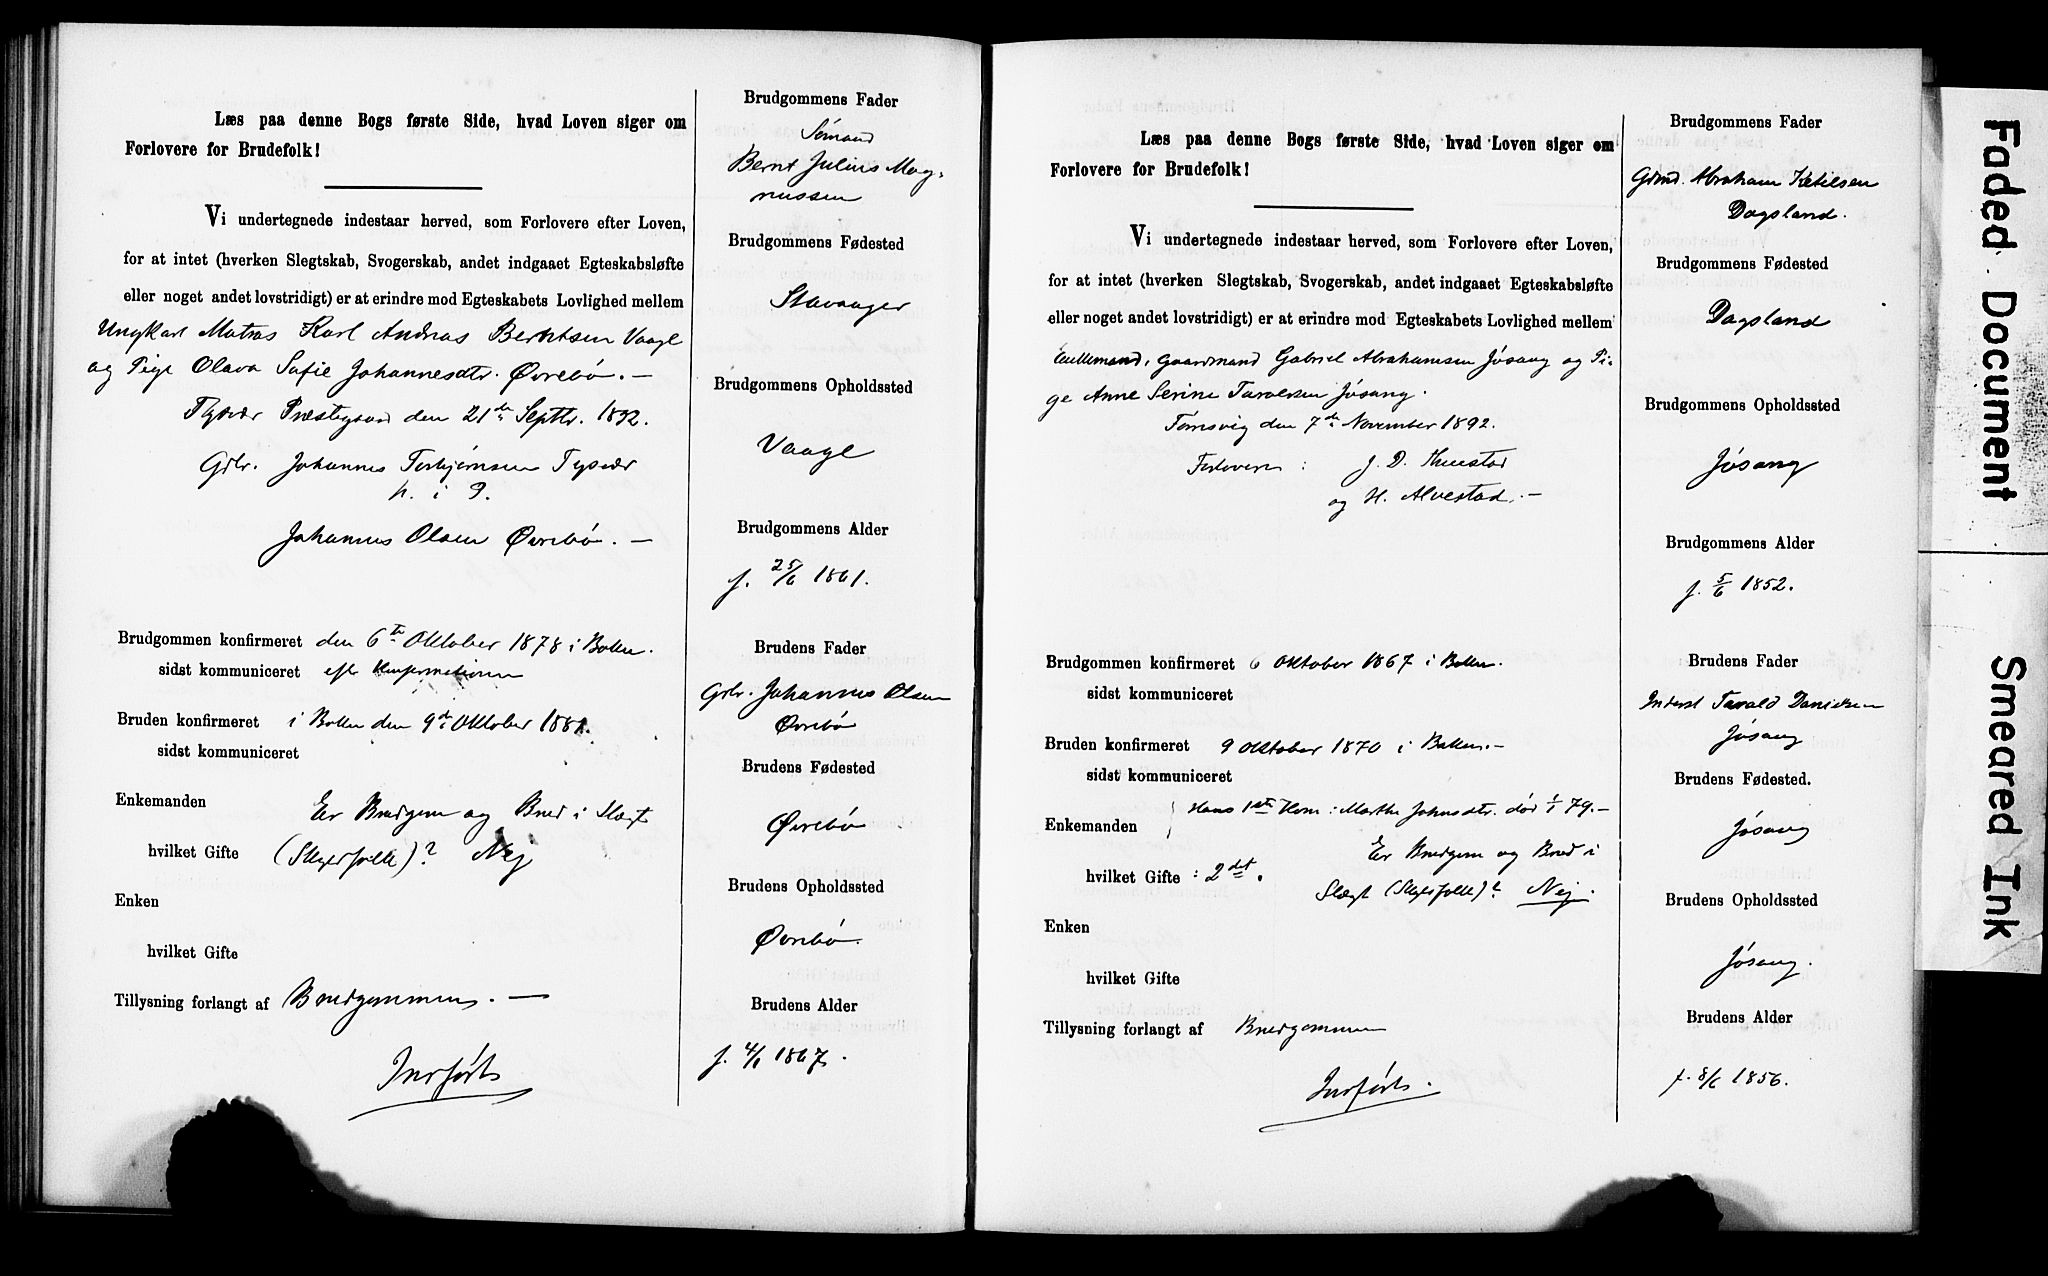 Læs paa denne Bogs første Side, hvad Loven siger om
Forlovere for Brudefolk!
Vi undertegnede indestaar herved, som Forlovere efter Loven,
for at intet (hverken Slegtskab, Svogerskab, andet indgaaet Egteskabsløfte
eller noget andet lovstridigt) er at erindre mod Egteskabets Lovlighed mellem
Ungkarl Matros Karl Andreas Berntsen Vaage
og Pige Olava Sofie Johannesdtr. Øvrebø. —
Tysvær Prestegaard den 21de Septbr. 1892.
Gdbr. Johannes Torbjørnsen Tysvær
p. i P.
Johannes Olsen Øvrebø. —
Brudgommen konfirmeret den 6te Oktober 1878 i Bokn.
sidst kommuniceret efter Konfirmationen
Bruden konfirmeret i Bokn den 9de Oktober 1881.
sidst kommuniceret
Enkemanden Er Brudgom og Brud i Slægt
hvilket Gifte (Skyldfolk)? Nej
Enken
hvilket Gifte
Tillysning forlangt af Brudgommen. —
Indført
Brudgommens Fader
Sømand
Bernt Julius Mag-
nussen
Brudgommens Fødested
Stavanger
Brudgommens Opholdssted
Vaage
Brudgommens Alder
f. 25/6 1861.
Brudens Fader
Gdbr. Johannes Olsen
Øvrebø
Brudens Fødested
Øvrebø
Brudens Opholdssted
Øvrebø.
Brudens Alder
f. 4/1 1867.
Læs paa denne Bogs første Side, hvad Loven siger om
Forlovere for Brudefolk!
Vi undertegnede indestaar herved, som Forlovere efter Loven,
for at intet (hverken Slegtskab, Svogerskab, andet indgaaet Egteskabsløfte
eller noget andet lovstridigt) er at erindre mod Egteskabets Lovlighed mellem
Enkemand, Gaardmand Gabriel Abrahamsen Jøsang og Pi-
ge Anne Serine Taraldsen Jøsang.
den 7de November 1892.
Forlovere : J. D.
og H. Alvestad. —
Brudgommen konfirmeret 6 Oktober 1867 i Bokn.
sidst kommuniceret
Bruden konfirmeret 9 Oktober 1870 i Bokn. —
sidst kommuniceret
Hans 1ste Kone: Marthe Johnsdtr. død 1/1 79. —
Enkemanden Er Brudgom og Brud i
hvilket Gifte : 2det. Slægt (Skyldfolk)? Nej.
Enken
hvilket Gifte
Tillysning forlangt af Brudgommen
Indført.
Brudgommens Fader
Gdmd. Abraham Ketilsen
Dagsland.
Brudgommens Fødested
Dagsland
Brudgommens Opholdssted
Jøsang
Brudgommens Alder
f. 5/6 1852.
Brudens Fader
Inderst Tarald Danielsen
Jøsang
Brudens Fødested.
Jøsang
Brudens Opholdssted
Jøsang.
Brudens Alder
f. 8/6 1856.
Faded Document
Smeared Ink